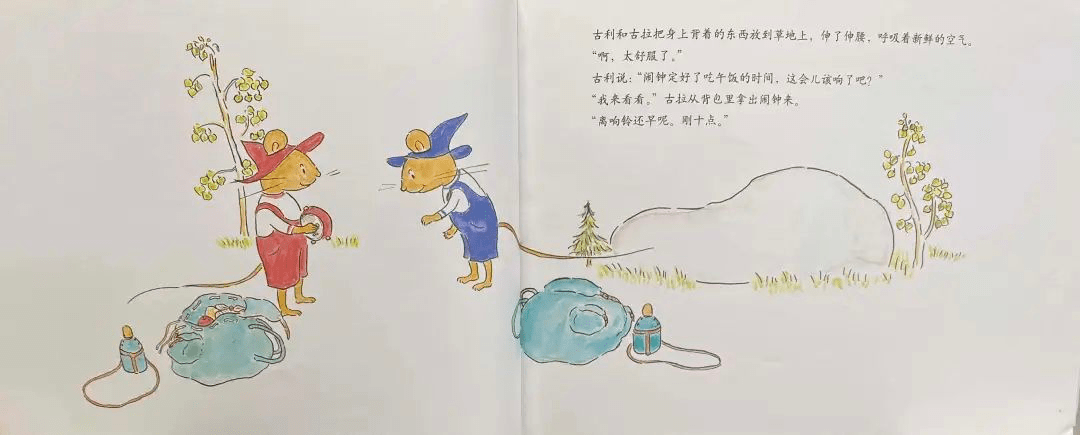 古利和古拉把身上背着的东西放到草地上，伸了伸腰，呼吸着新鲜的空气。
“啊，太舒服了。”
古利说：“闹钟定好了吃午饭的时间，这会儿该响了吧？”
“我来看看。”古拉从背包里拿出闹钟来。
“离响铃还早呢。刚十点。”